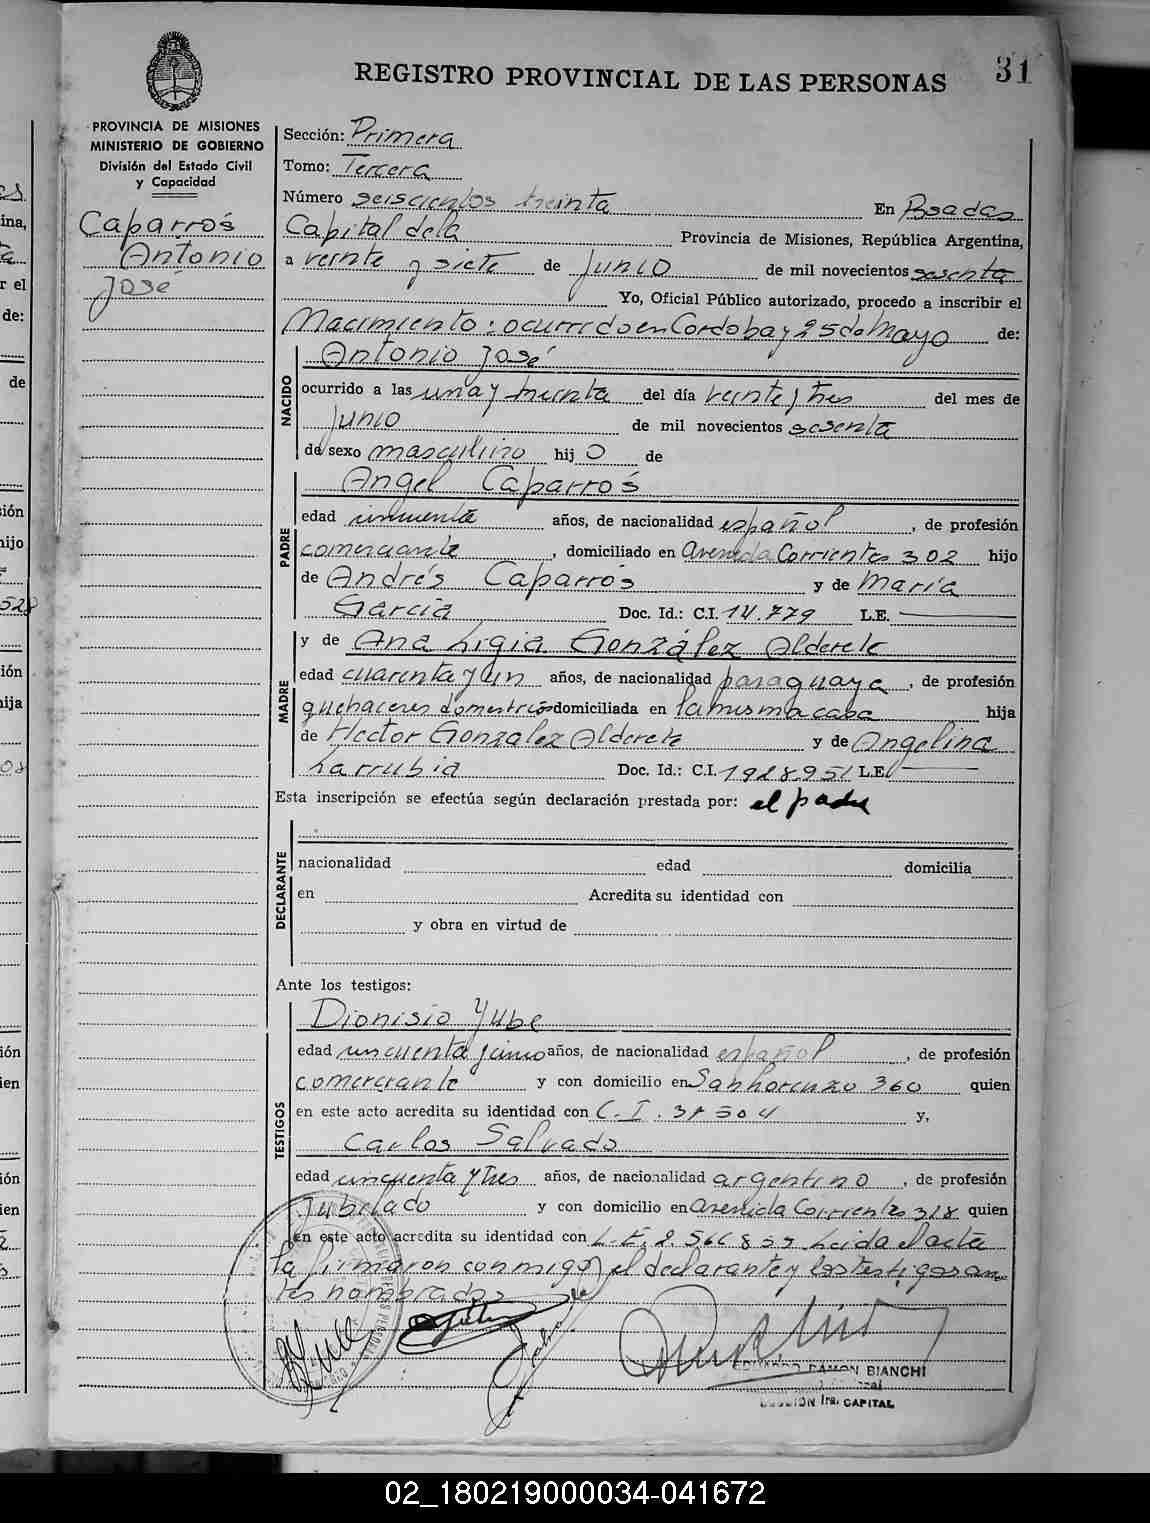 31
REGISTRO PROVINCIAL DE LAS PERSONAS
PROVINCIA DE MISIONES
MINISTERIO DE GOBIERNO
División del Estado Civil
y Capacidad
Caparrós
Antonio
José
Sección: Primera
Tomo: Tercera
Número seiscientos treinta En Posadas
Capital dela Provincia de Misiones, República Argentina,
a veinte y siete de Junio de mil novecientos sesenta
Yo, Oficial Público autorizado, procedo a inscribir el
Nacimiento: ocurrido en Cordoba y 25 de Mayo de:
NACIDO
Antonio José
ocurrido a las una y treinta del día veinte y tres del mes de
Junio de mil novecientos sesenta
de sexo masculino hij o de
PADRE
Angel Caparrós
edad cincuenta años, de nacionalidad español, de profesión
comerciante, domiciliado en Avenida Corrientes 302 hijo
de Andrés Caparrós y de María
García Doc. Id.: C.I. 14.779 L.E.
MADRE
y de Ana Ligia González Alderete
edad cuarenta y un años, de nacionalidad paraguaya, de profesión
quehaceres domestricos domiciliada en la misma casa hija
de Hector Gonzalez Alderete y de Angelina
Larrubia Doc. Id.: C.I. 1928951 L.E.
Esta inscripción se efectúa según declaración prestada por: el padre
DECLARANTE
nacionalidad edad domicilia
en Acredita su identidad con
y obra en virtud de
Ante los testigos:
TESTIGOS
Dionisio Yube
edad cincuenta y cinco años, de nacionalidad español, de profesión
comerciante y con domicilio en San Lorenzo 360 quien
en este acto acredita su identidad con C.I. y,
Carlos Salvado
edad cincuenta y tres años, de nacionalidad argentino, de profesión
Jubilado y con domicilio en Avenida Corrientes 318 quien
en este acto acredita su identidad con L.E. 2.566 839 Leida el acta
la firmaron conmigo, el declarante y los testigos an
tes nombrados
EDUARDO RAMON BIANCHI
SECCION 1ra. CAPITAL
02_180219000034-041672